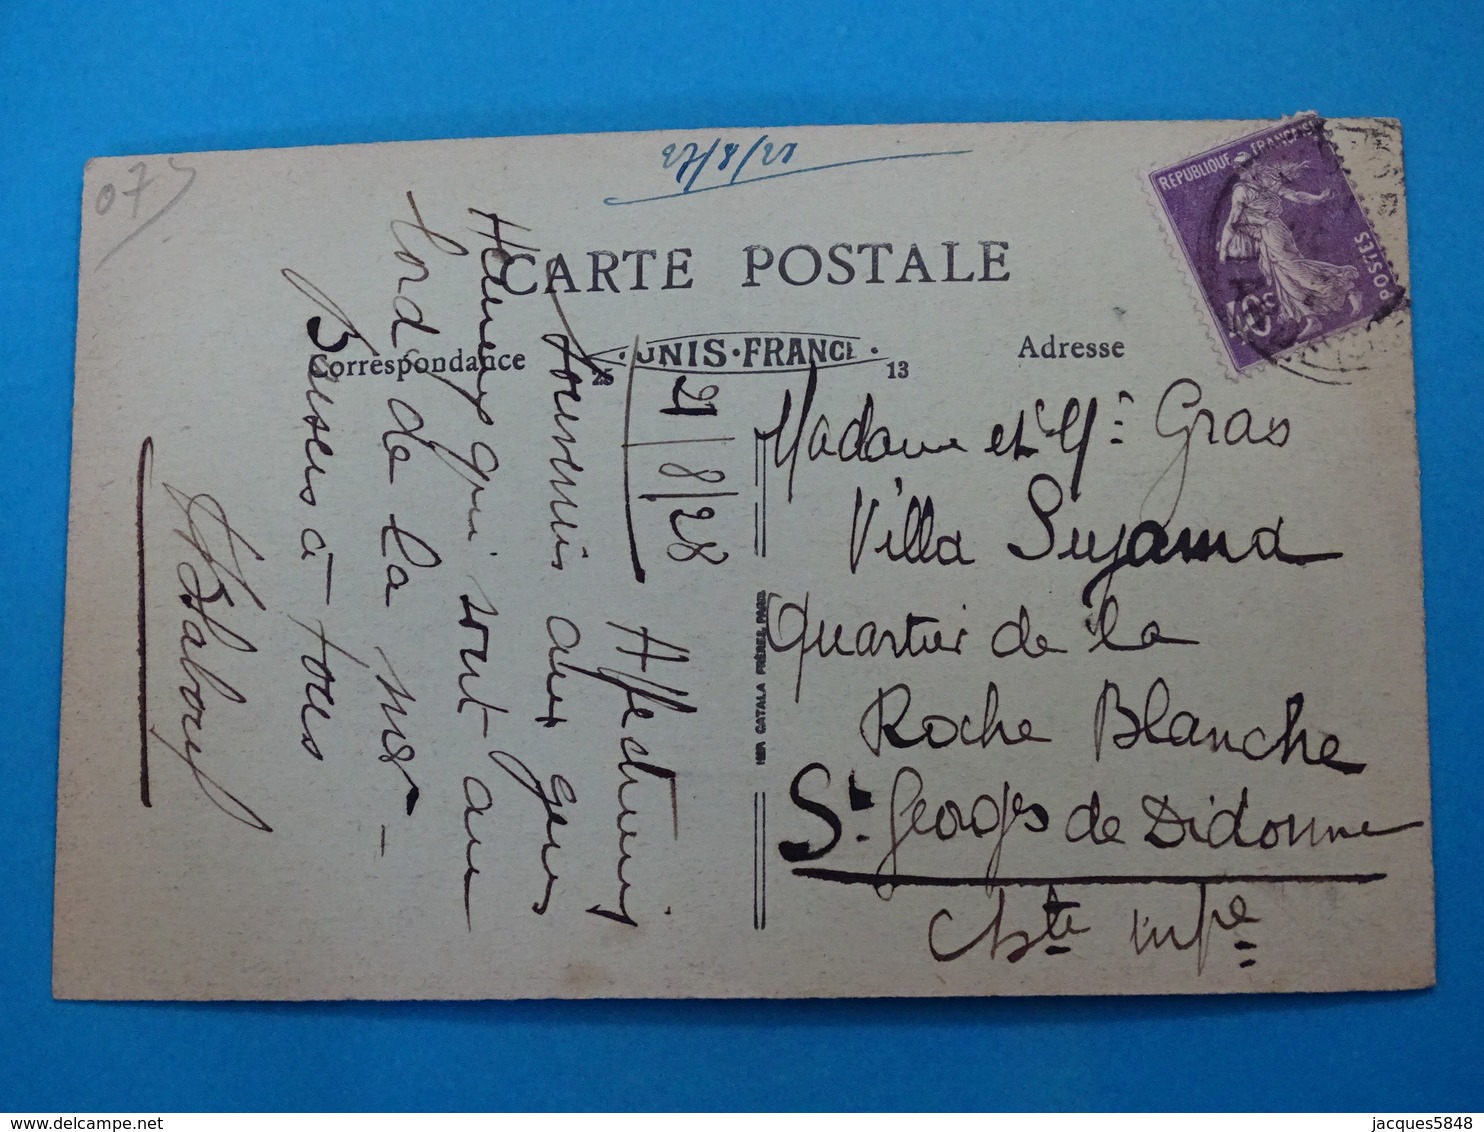 073
27/8/28
CARTE POSTALE
Correspondance
UNIS-FRANCE
25
13
Adresse
REPUBLIQUE FRANCAISE
POSTES
40c
21/8/28 Affectueux
souvenir aux gens
Heureux qui sont au
bord de la mer -
Baisers à tous
Madame et Mr Gras
Villa Suyama
Quartier de la
Roche Blanche
St Georges de Didonne
Chte infre
IMP. CATALA FRÈRES, PARIS
jacques5848